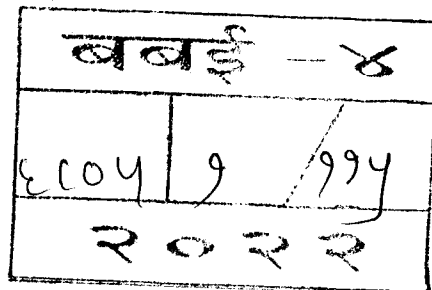 बबई - ४
६८०५ १ /११५
२०२२